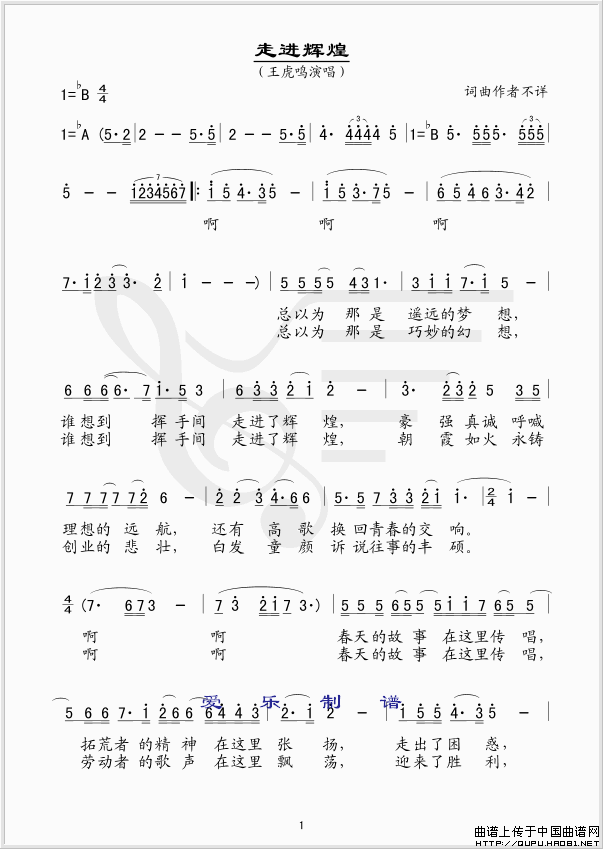 走进辉煌
（王虎鸣演唱）
1=♭B 4/4
词曲作者不详
1=♭A (5·2 | 2 - - 5·5 | 2 - - 5·5 | 4· 4444 5 | 1=♭B 5· 555 5· 555 |
5 - - 1234567 |: 1 5 4·35 - | 1 5 3·75 - | 6 5 463·42 |
啊 啊 啊
7·123 3· 2 | 1 - - -) | 5 5 55 431· | 3 11 7·1 5 - |
总以为 那 是 遥远的梦 想，
总以为 那 是 巧妙的幻 想，
6 6 66· 71·53 | 6 33 221 2 - | 3· 232 5 35 |
谁想到 挥手间 走进了辉 煌， 豪 强真诚 呼喊
谁想到 挥手间 走进了辉 煌， 朝 霞如火 永铸
7 77 772 6 - | 22 34·66 | 5·57 33 221 1· | 2/4 1 - |
理想的 远 航， 还有 高 歌 换 回青春的交 响。
创业的 悲 壮， 白发 童 颜 诉 说往事的丰 硕。
4/4 (7· 673 - | 73 2173·) | 555 655 511 765 |
啊 啊 春天的故 事 在这里传 唱，
啊 啊 春天的故 事 在这里传 唱，
爱 乐 制 谱
5 66 7·1266 6443 | 2·1 2 - | 1·55 4·35 - |
拓荒者 的精 神 在这里 张 扬， 走出了困 惑，
劳动者 的歌 声 在这里 飘 荡， 迎来了胜 利，
1
曲谱上传于中国曲谱网
HTTP://QUPU.HAO81.NET